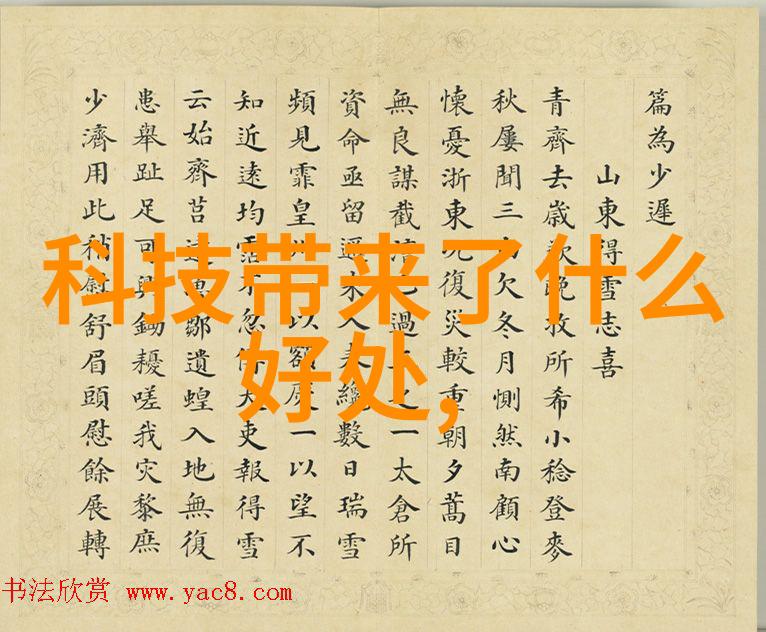 科技带来了什么
好处,
篇為少遲
山東得雪志喜
青齊去歲歉晚收所希小稔登麥
秋屢聞三欠冬月惻然南顧心
懷憂浙東況復災較重朝夕蒿目
無良謀截漕過之一太倉所
資命亟留米入奏數日瑞雪
頻見霏皇州以額慶一以望不
知近遠均霑不忽傳大吏報得雪
云始齊莒達鄒遺蝗入地無復
患舉趾足可興鋤耰嗟我灾黎庶
少濟用此稍舒眉頭慰餘展轉
书法欣赏 www.yac8.com